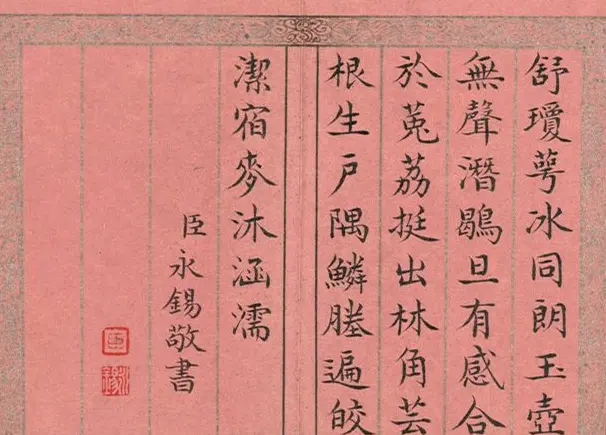 舒瓊萼冰同朗玉壺
無聲潛鶡旦有感合
於菟荔挺出林角芸
根生戶隅鱗塍遍皎
潔宿麥沐涵濡
臣永錫敬書
臣
永錫